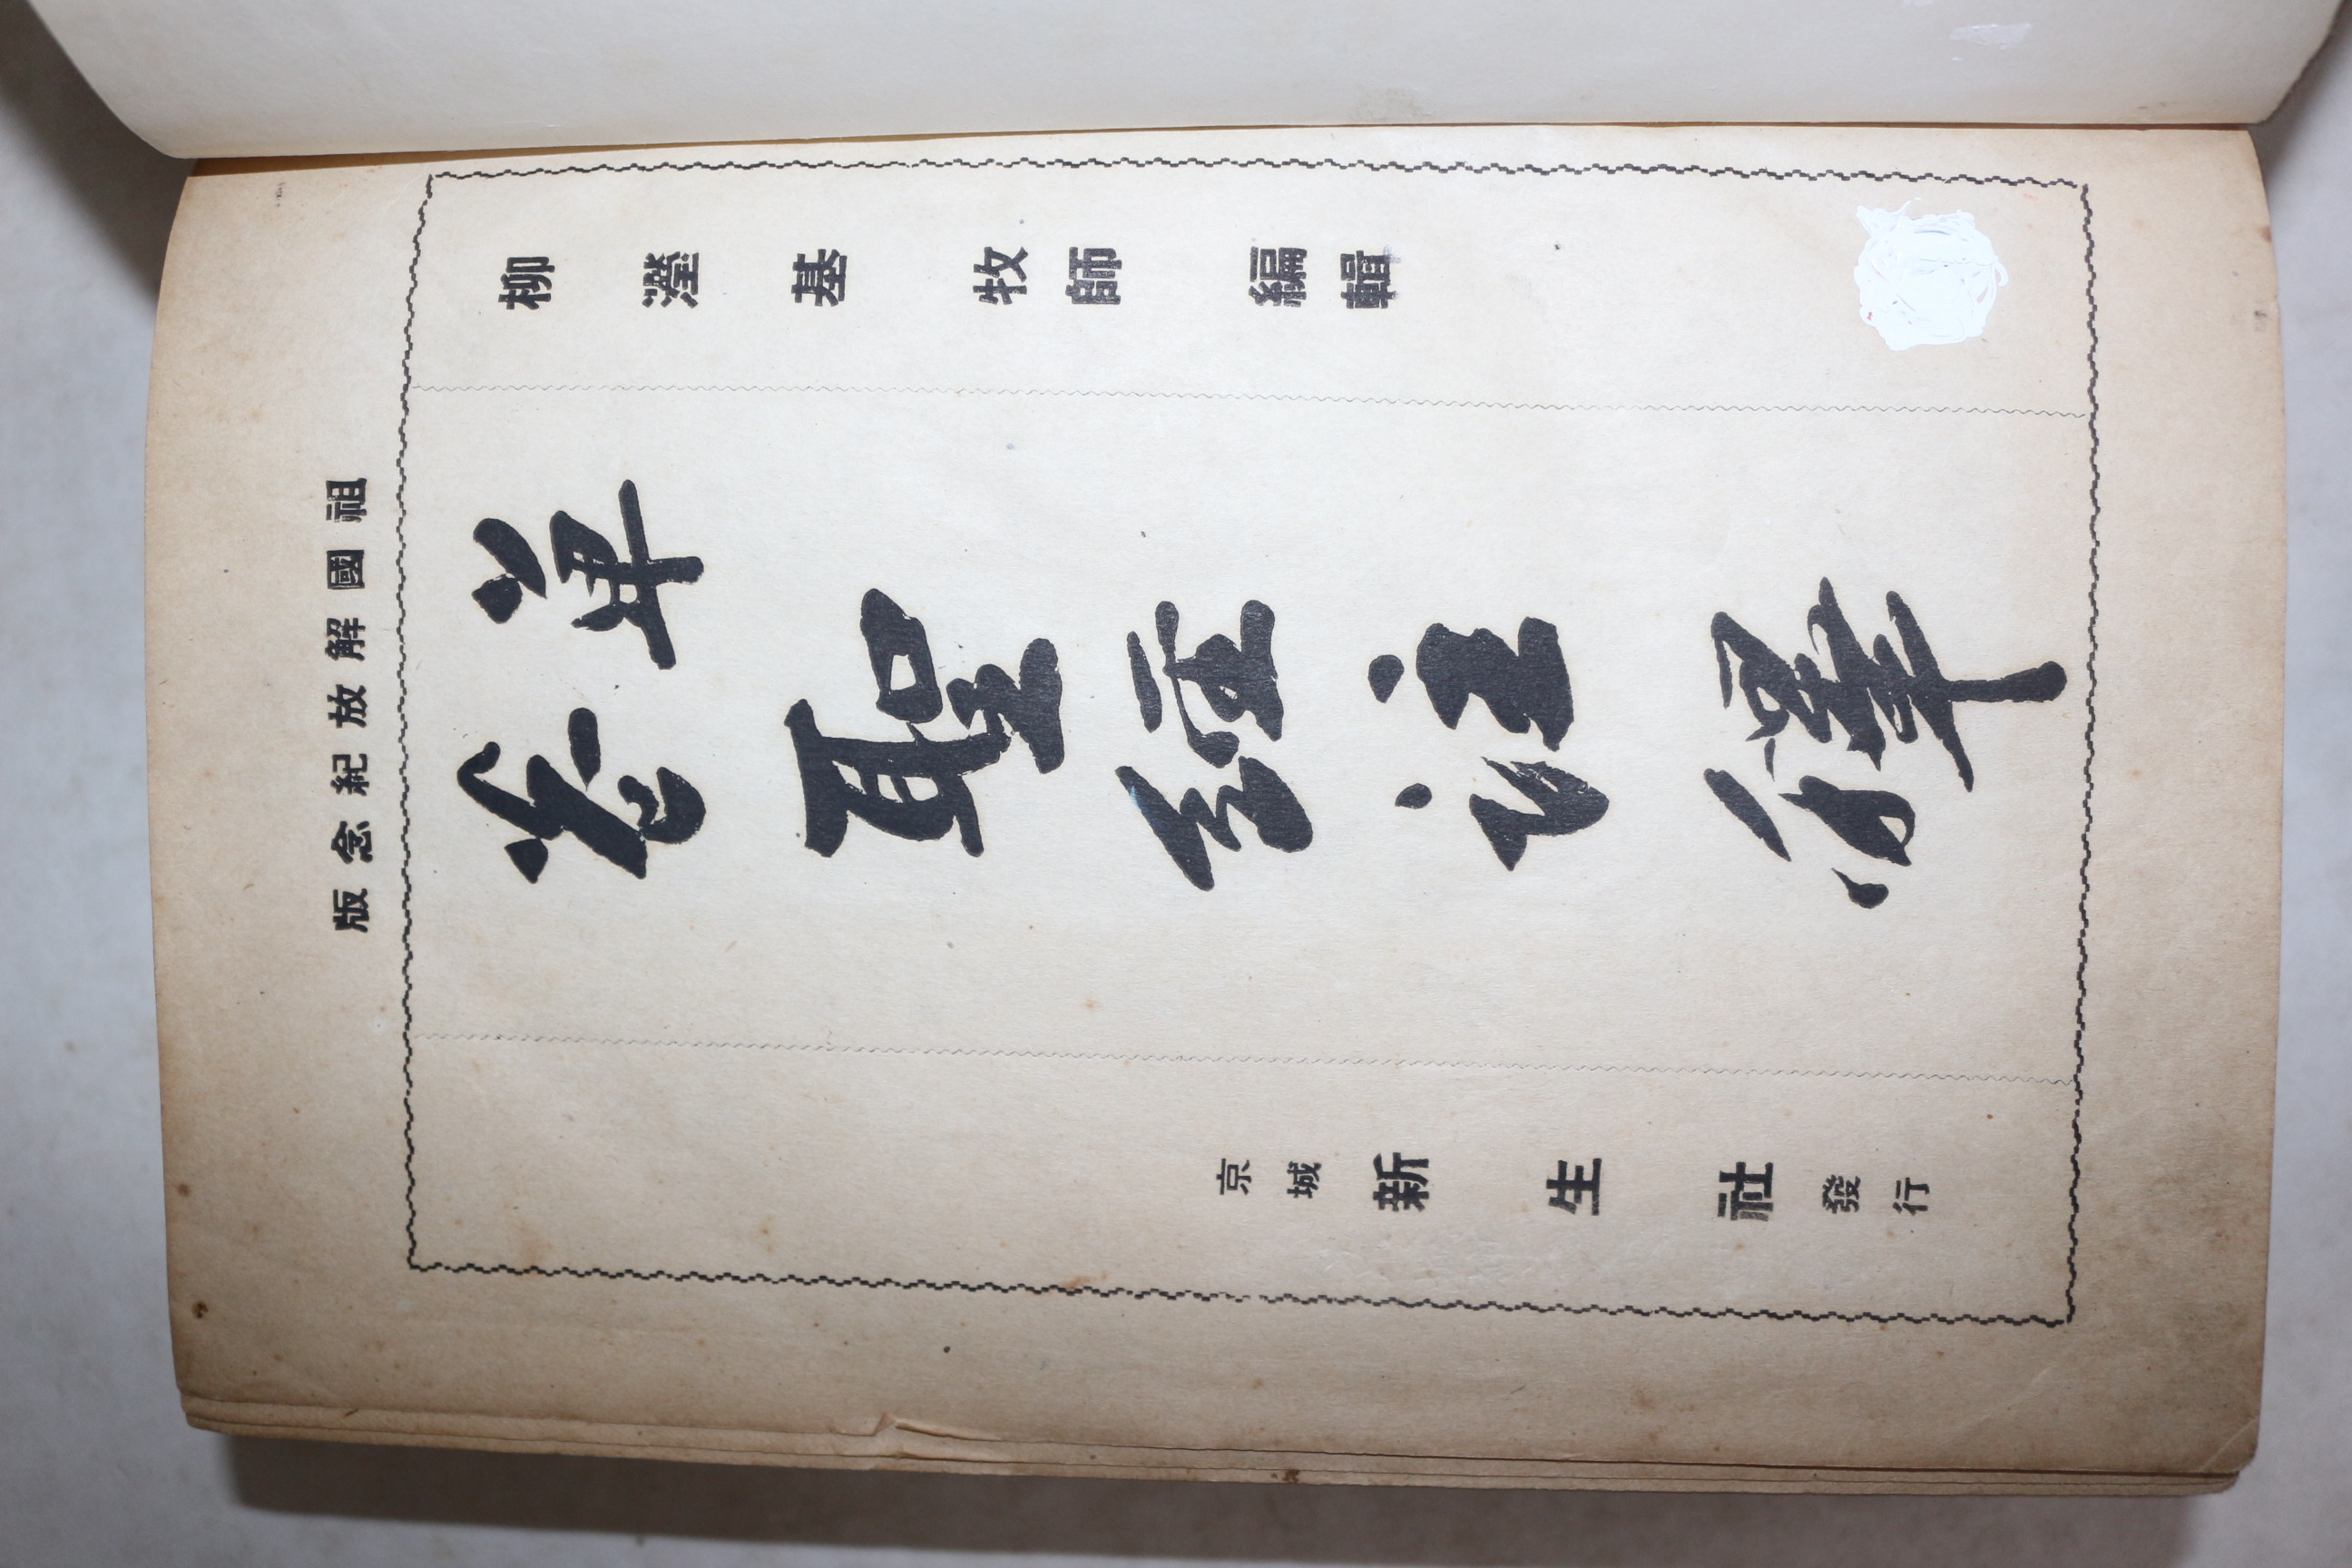 祖國解放紀念版
柳瀅基 牧師 編輯
單卷聖經註釋
京城 新生社 發行